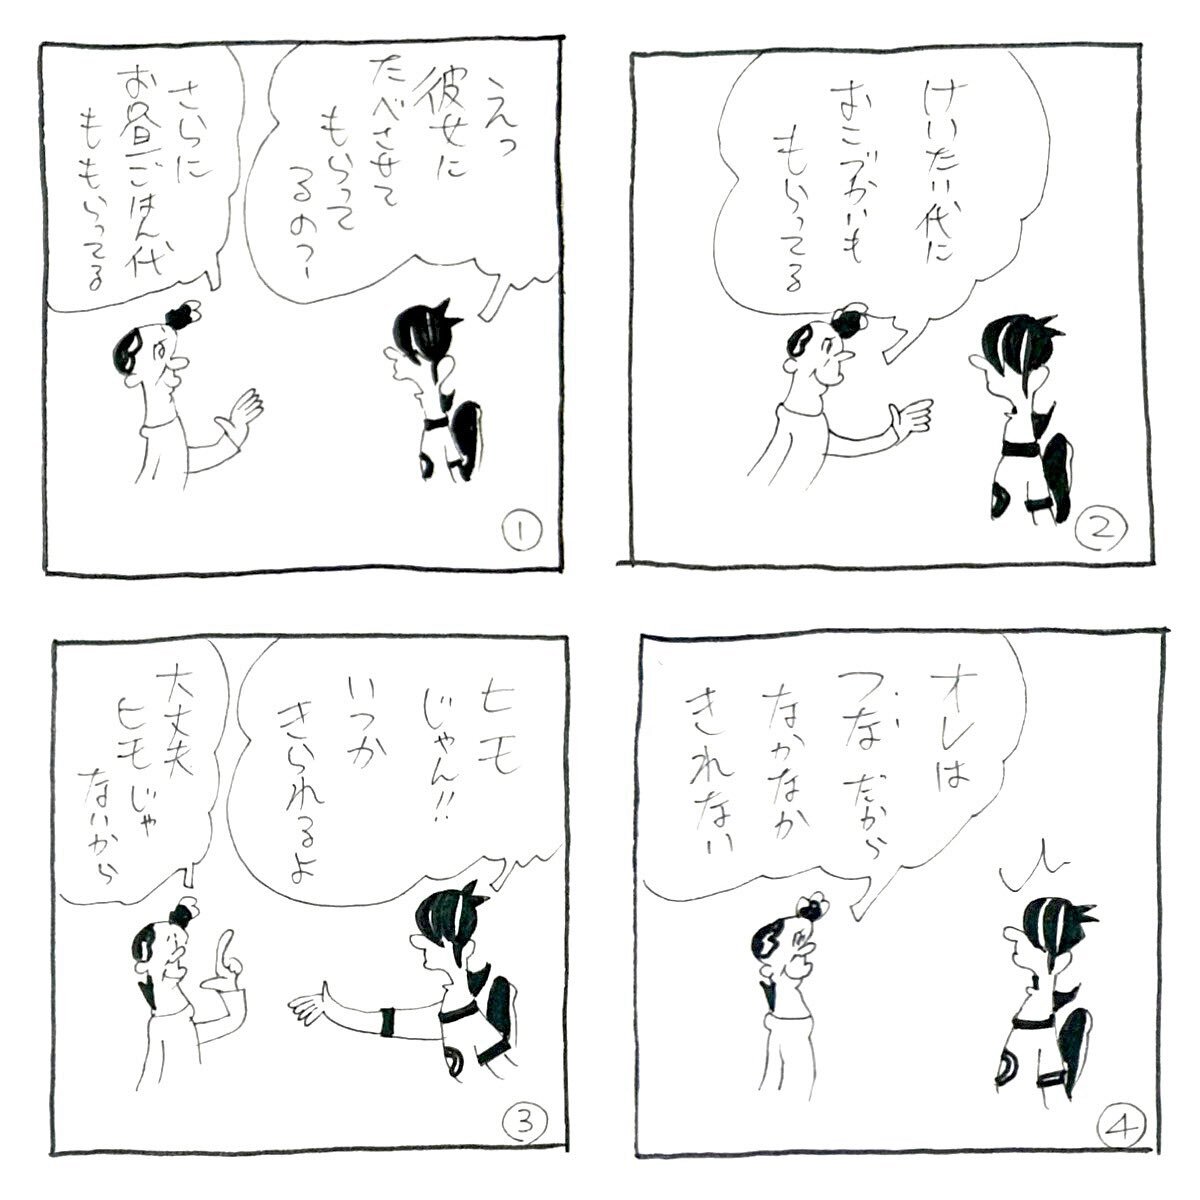 えっ
彼女に
たべさせて
もらって
るの？
さらに
お昼ごはん代
ももらってる
①
けいたい代に
おこづかいも
もらってる
②
ヒモ
じゃん!!
いつか
きられるよ
大丈夫
ヒモじゃ
ないから
③
オレは
つなだから
なかなか
きれない
④